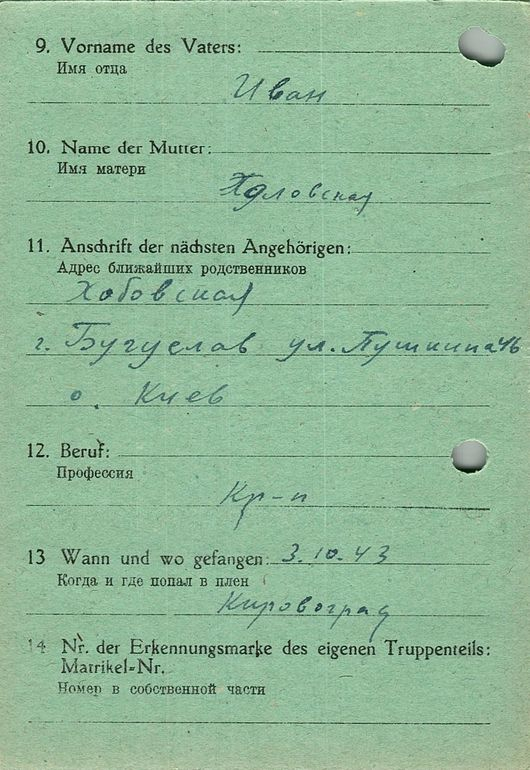 9. Vorname des Vaters:
Имя отца
Иван
10. Name der Mutter:
Имя матери
11. Anschrift der nächsten Angehörigen:
Адрес ближайших родственников
Хобовская
г. Бугуслав ул. Пушкина 46
о. Киев
12. Beruf:
Профессия
Кр-н
13 Wann und wo gefangen: 3.10.43
Когда и где попал в плен
Кировоград
14 Nr. der Erkennungsmarke des eigenen Truppenteils:
Matrikel-Nr.
Номер в собственной части